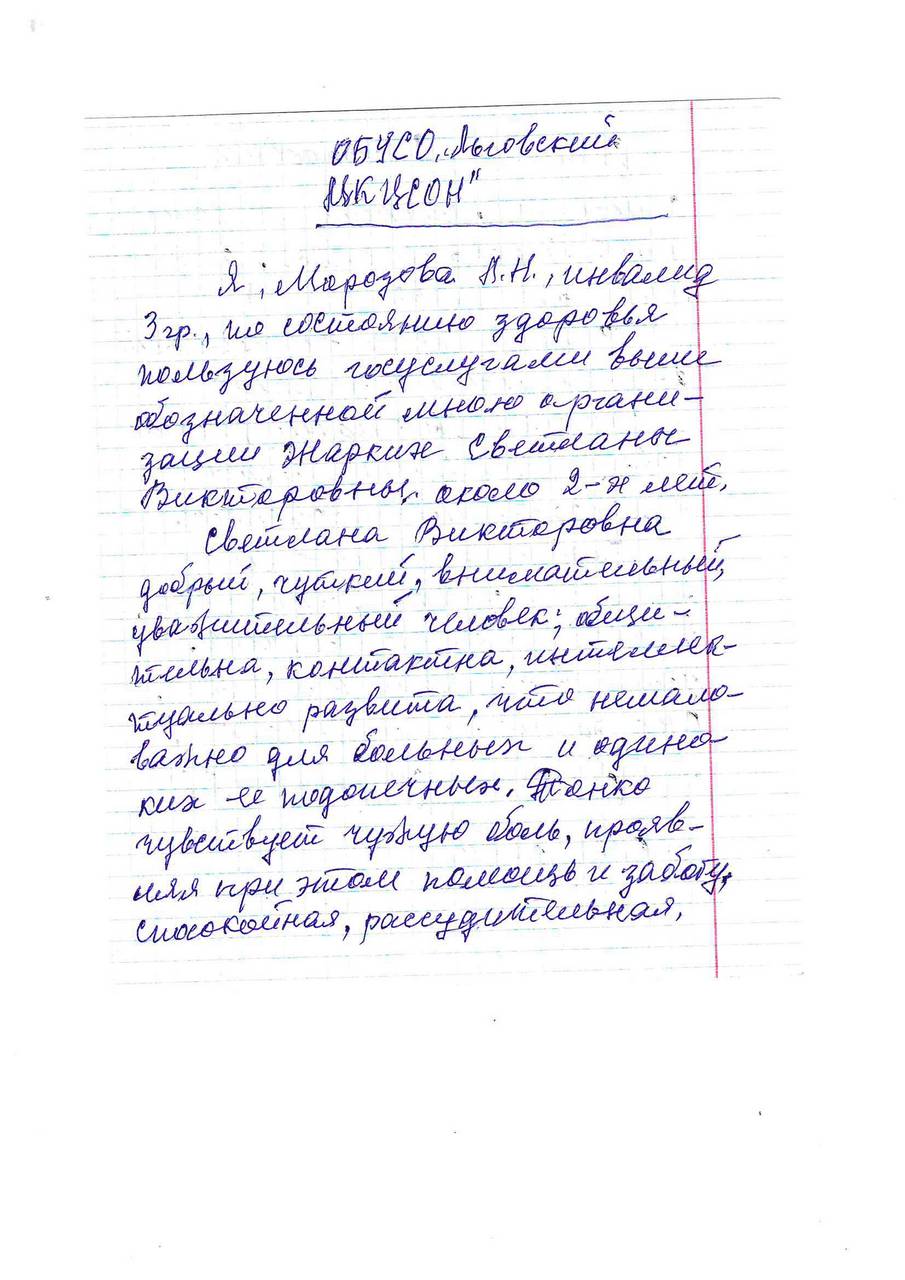 ОБУСО „Льговский
МКЦСОН"
Я, Морозова В.Н., инвалид
3 гр., по состоянию здоровья
пользуюсь госуслугами выше
обозначенной мною органи-
зации Жарких Светланы
Викторовны около 2-х лет.
Светлана Викторовна
добрый, чуткий, внимательный,
уважительный человек; общи-
тельна, контактна, интеллек-
туально развита, что немало-
важно для больных и одино-
ких ее подопечных. Тонко
чувствует чужую боль, прояв-
ляя при этом помощь и заботу,
спокойная, рассудительная,